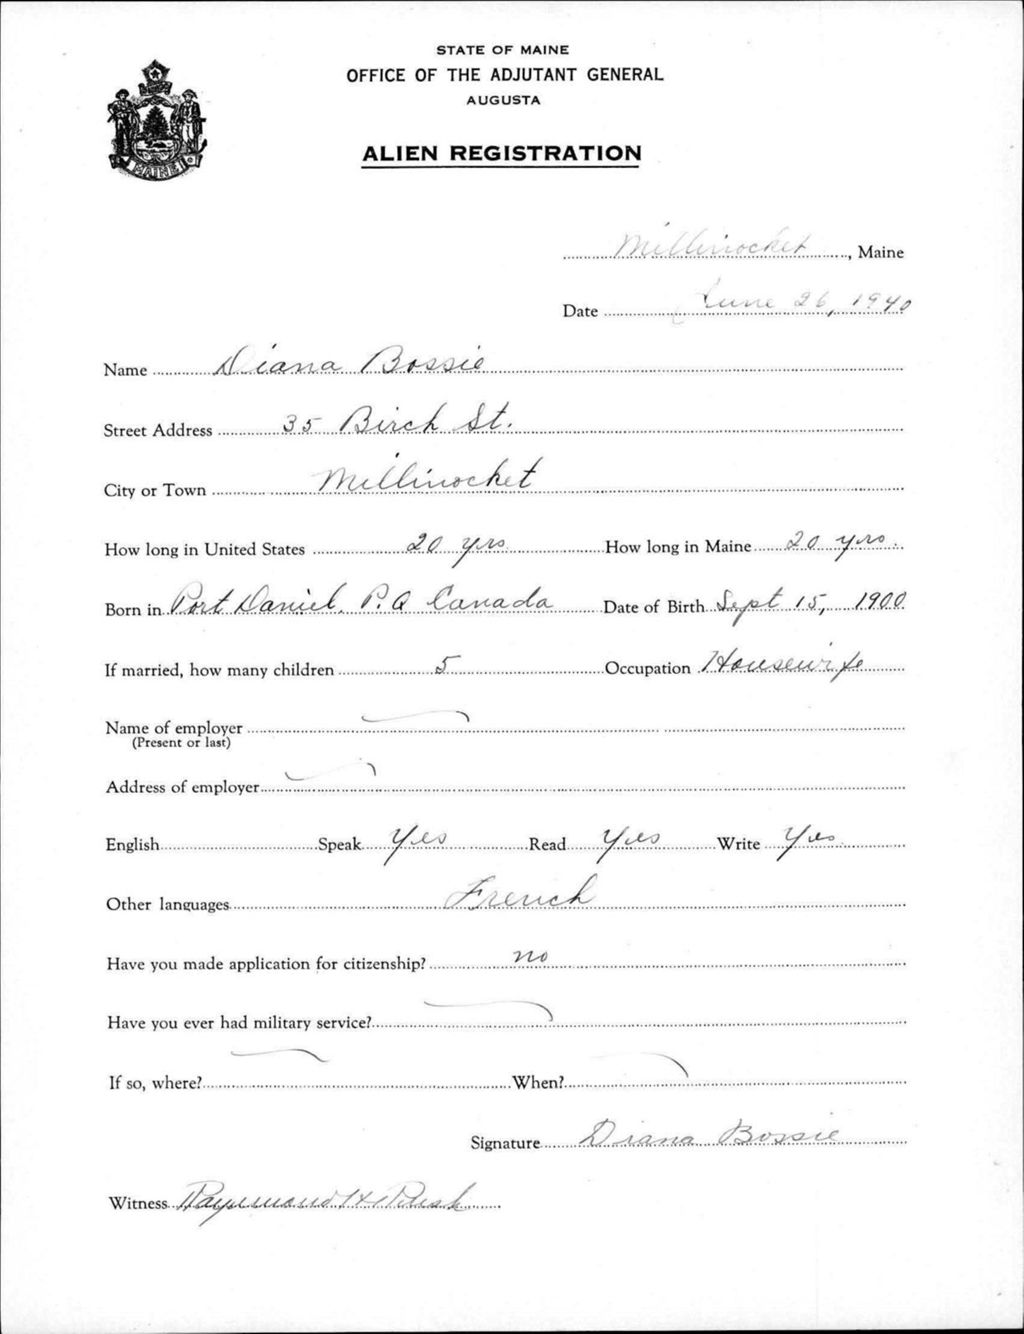 STATE OF MAINE
OFFICE OF THE ADJUTANT GENERAL
AUGUSTA
ALIEN REGISTRATION
MAINE
Millinocket, Maine
Date June 26, 1940
Name Diana Bossie
Street Address 35 Birch St.
City or Town Millinocket
How long in United States 20 yrs. How long in Maine 20 yrs.
Born in Port Daniel, P.Q. Canada Date of Birth Sept 15, 1900
If married, how many children 5 Occupation Housewife
Name of employer
(Present or last)
Address of employer
English Speak Yes Read Yes Write Yes
Other languages French
Have you made application for citizenship? no
Have you ever had military service?
If so, where? When?
Signature Diana Bossie
Witness Raymond H. Rush